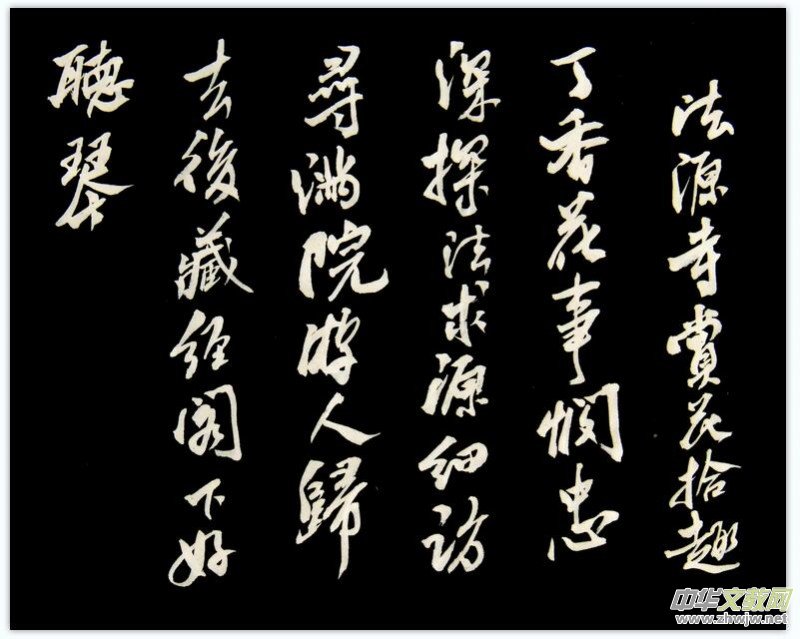 法源寺賞花拾趣
丁香花事憫忠
深探法求源細訪
尋满院游人歸
去後藏經阁下好
聽琴
中华文教网
www.zhwjw.net